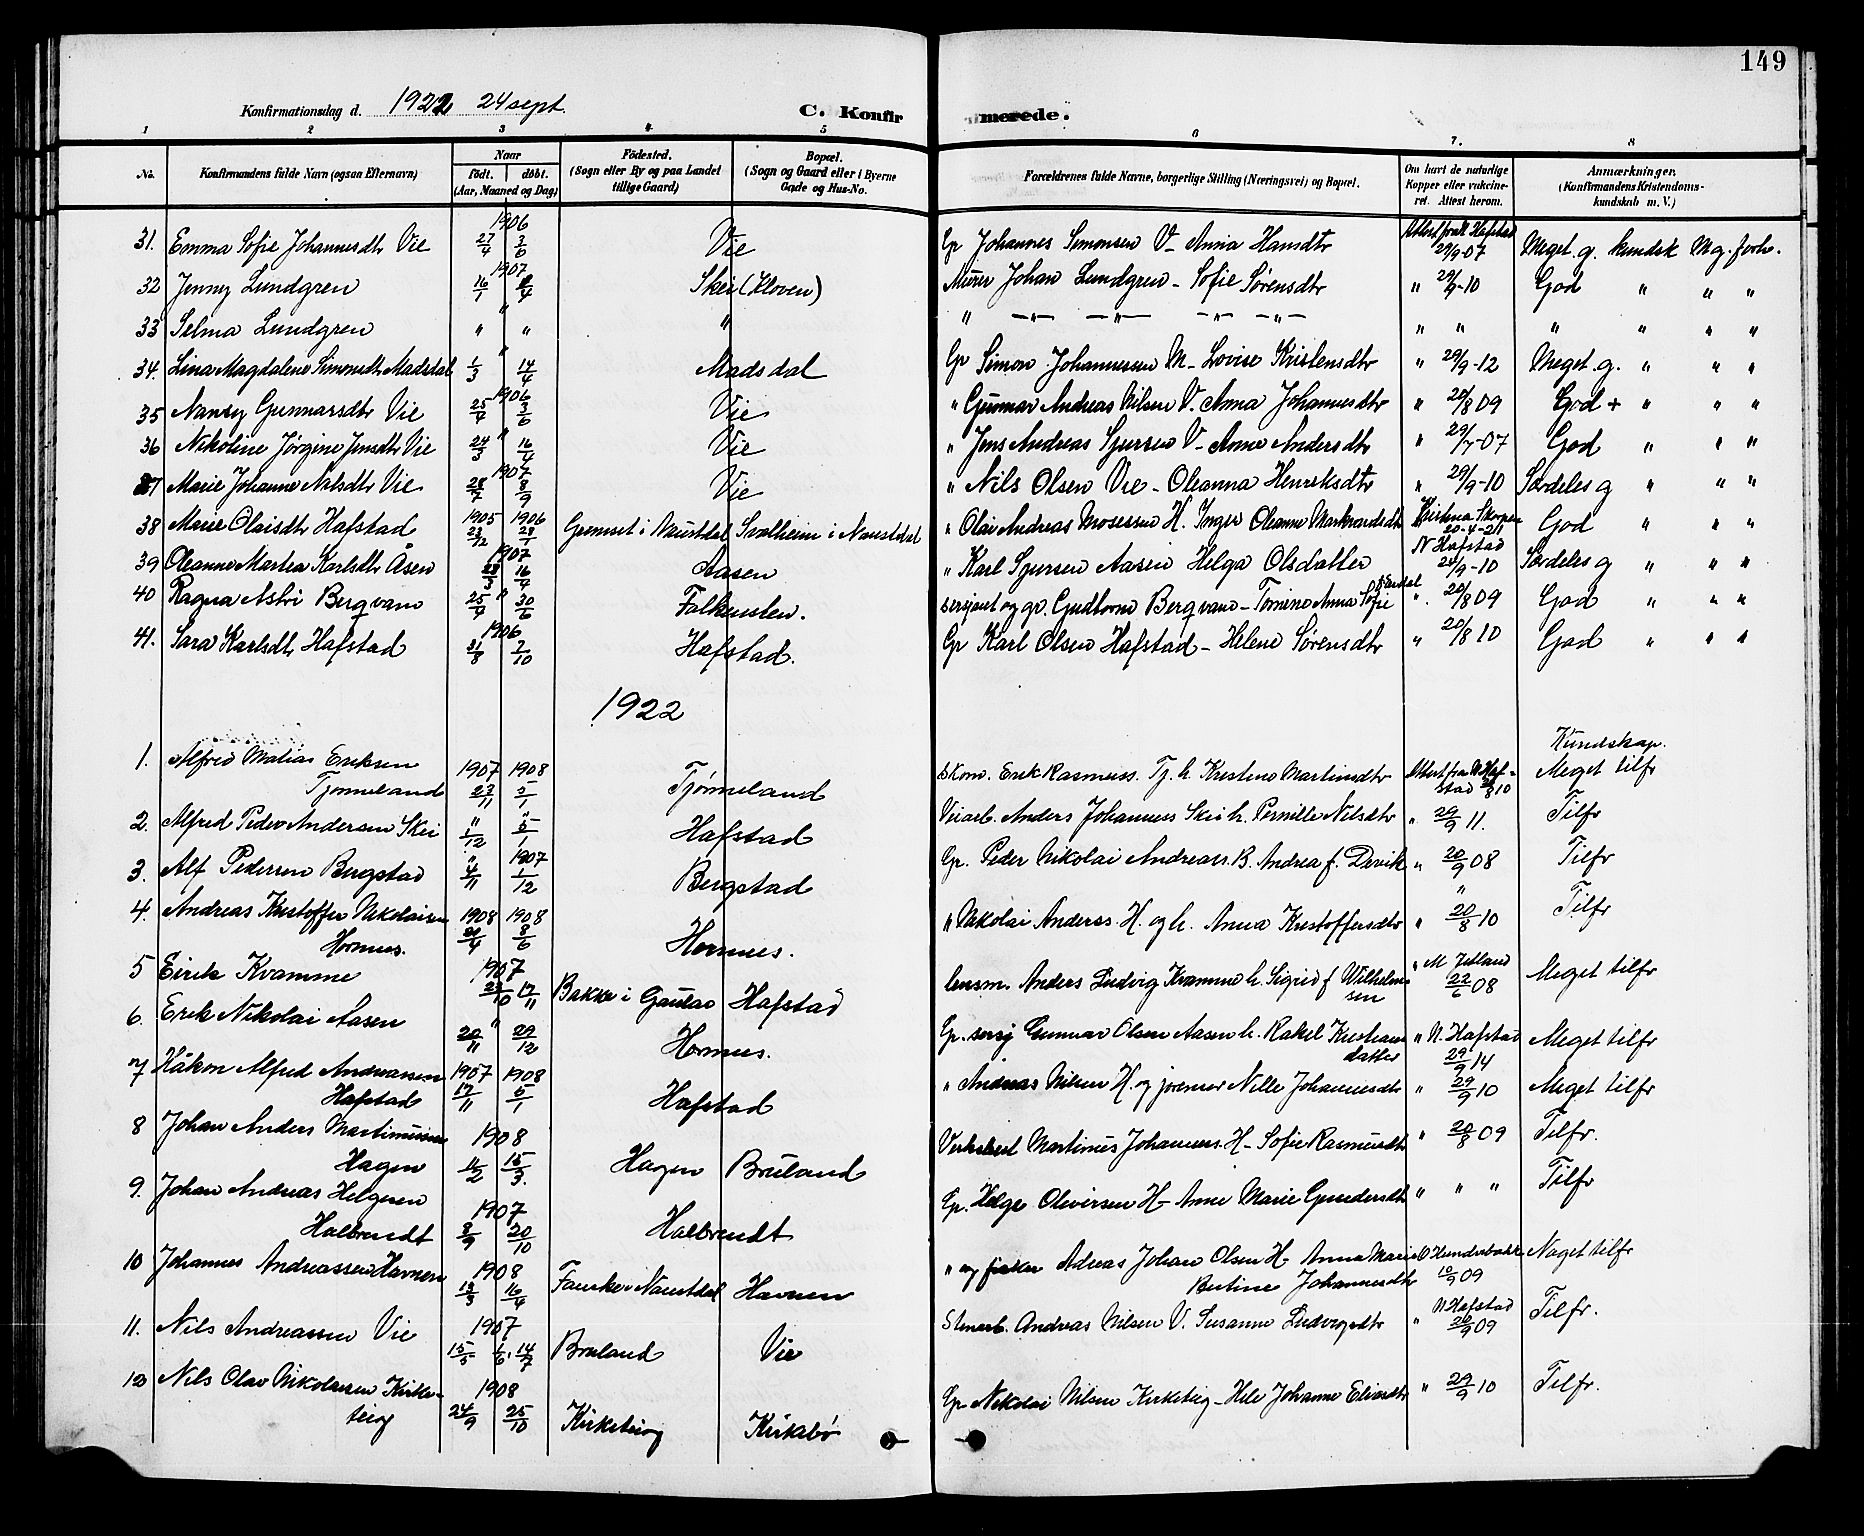 149
Konfirmationsdag d. 1922 24 sept.
C. Konfirmerede.
1 2 3 4 5 6 7. 8
No. Konfirmandens fulde Navn (ogsaa Efternavn) Naar født. døbt. (Aar, Maaned og Dag) Fødested. (Sogn eller By og paa Landet tillige Gaard) Bopæl. (Sogn og Gaard eller i Byerne Gade og Hus-No. Forældrenes fulde Navne, borgerlige Stilling (Næringsvei) og Bopæl. Om havt de naturlige Kopper eller vakcineret. Attest herom. Anmærkninger. (Konfirmandens Kristendomskundskab m. V.)
1906
31. Emma Sofie Johannesdtr Vie 27/4 3/6 Vie Gp Johannes Simonsen V- Anna Hansdtr Attest fra N Hafstad 29/9-07 Meget g. kundsk Mg. forh.
1907
32 Jenny Lundgren 16/1 2/4 Skei (Kloven) Murer Johan Lundgren - Sofie Sørensdtr " 29/9-10 God " " "
33 Selma Lundgren " " " " " " " " " "
34. Lina Magdalene Simonsdtr Madsdal 1/3 14/4 Madsdal Gp Simon Johannessen M- Lovise Kristensdtr " 29/9-12 Meget g. " " "
1906
35 Nancy Gunnarsdtr Vie 25/4 3/6 Vie " Gunnar Andreas Nilsen V. Anna Johannesdtr " 20/8 09 God + " " "
36 Nikoline Jørgine Jensdtr Vie 24/3 16/4 Vie " Jens Andreas Sjursen V- Anne Andersdtr " 29/7-07 God " " "
1907
37 Marie Johanne Nilsdtr Vie 28/7 8/9 Vie " Nils Olsen Vie - Oleanna Henriksdtr " 29/9-10 Særdeles g " " "
38 Marie Olaisdtr Hafstad 1905 23/12 1906 28/1 i Naustdal Svalheim i Naustdal " Olai Andreas Mosessen H. Inger Oleanne Markvardsdtr Kristina Skorpen 20-4-21 God " " "
1907
39 Oleanne Martea Karlsdtr Åsen 23/3 16/4 Aasen " Karl Sjursen Aasen Helga Olsdatter N Hafstad 29/9-10 Særdeles g " " "
40 Ragna Astri Bergvam 25/4 30/6 Falkensten. sersjant og gp. Gudtorm Bergvam - Tomine Anna Sofie " 20/8 09 God " " "
1906
41. Sara Karlsdtr Hafstad 31/8 7/10 Hafstad. Gp Karl Olsen Hafstad - Helene Sørensdtr " 20/8 10 God " " "
1922
Kundskap.
1. Alfred Matias Eriksen Tjønneland 1907 23/11 1908 5/1 Tjønneland Skom. Erik Rasmuss. Tj. h. Kristine Martinsdtr Attest fra N Hafstad 20/8 10 Meget tilfr
2. Alfred Peder Andersen Skei " 1/12 " 5/1 Hafstad Veiarb. Anders Johanness Skei h. Pernille Nilsdtr " 29/9 11. Tilfr
3. Alf Pedersen Bergstad " 4/11 1907 1/12 Bergstad Gp. Peder Nikolai Andreass. B. Andrea f. Devik " 20/9 08 Tilfr
4. Andreas Kristoffer Nikolaisen Hornnes. 1908 20/4 1908 8/6 Hornnes. " Nikolai Anderss. H. og h. Anna Kristoffersdtr " 20/8 10 Tilfr
5 Eirik Kvamme 1907 23/10 17/11 Bakke i Gaular Hafstad lensm. Anders Ludvig Kvamme h. Sigrid f. Wilhelmsen " M Jetland 22/6 08 Meget tilfr
6. Erik Nikolai Aasen " 20/11 29/12 Hornnes. Gp. sersj Gunnar Olsen Aasen h. Rakel Kristiansdatter " N. Hafstad 29/9 14 Meget tilfr
7 Håkon Alfred Andreassen Hafstad 1907 17/11 1908 5/1 Hafstad " Andreas Nilsen H. og jormor Nille Johannesdtr " 29/9 10 Meget tilfr
8 Johan Anders Martinussen Hagen 1908 11/2 15/3. Hagen Bruland Martinus Johanness. H- Sofie Rasmusdtr " 20/8 09 Tilfr.
9. Johan Andreas Helgesen Halbrendt 1907 8/9 20/10 Halbrendt Gp. Helge Oliversen H- Anne Marie Gundersdtr " " " Tilfr
10 Johannes Andreassen Havnen 1908 13/3 16/4 Naustdal Havnen " og fisker Adreas Johan Olsen H- Anna Marie Bertine Johannesdtr 10/9 09 Noget tilfr
11. Nils Andreassen Vie 1907 15/5 1/6. 14/7 Bruland Vie Stenarb. Andreas Nilsen V. Susanne Ludvigsdtr " N Hafstad 20/9 09 Tilfr.
12 Nils Olav Nikolaisen Kirketeig 1908 24/9 25/10 Kirketeig Kirkebø Gp Nikolai Nilsen Kirketeig - Johanne Eliasdtr " 29/9 10 Tilfr.